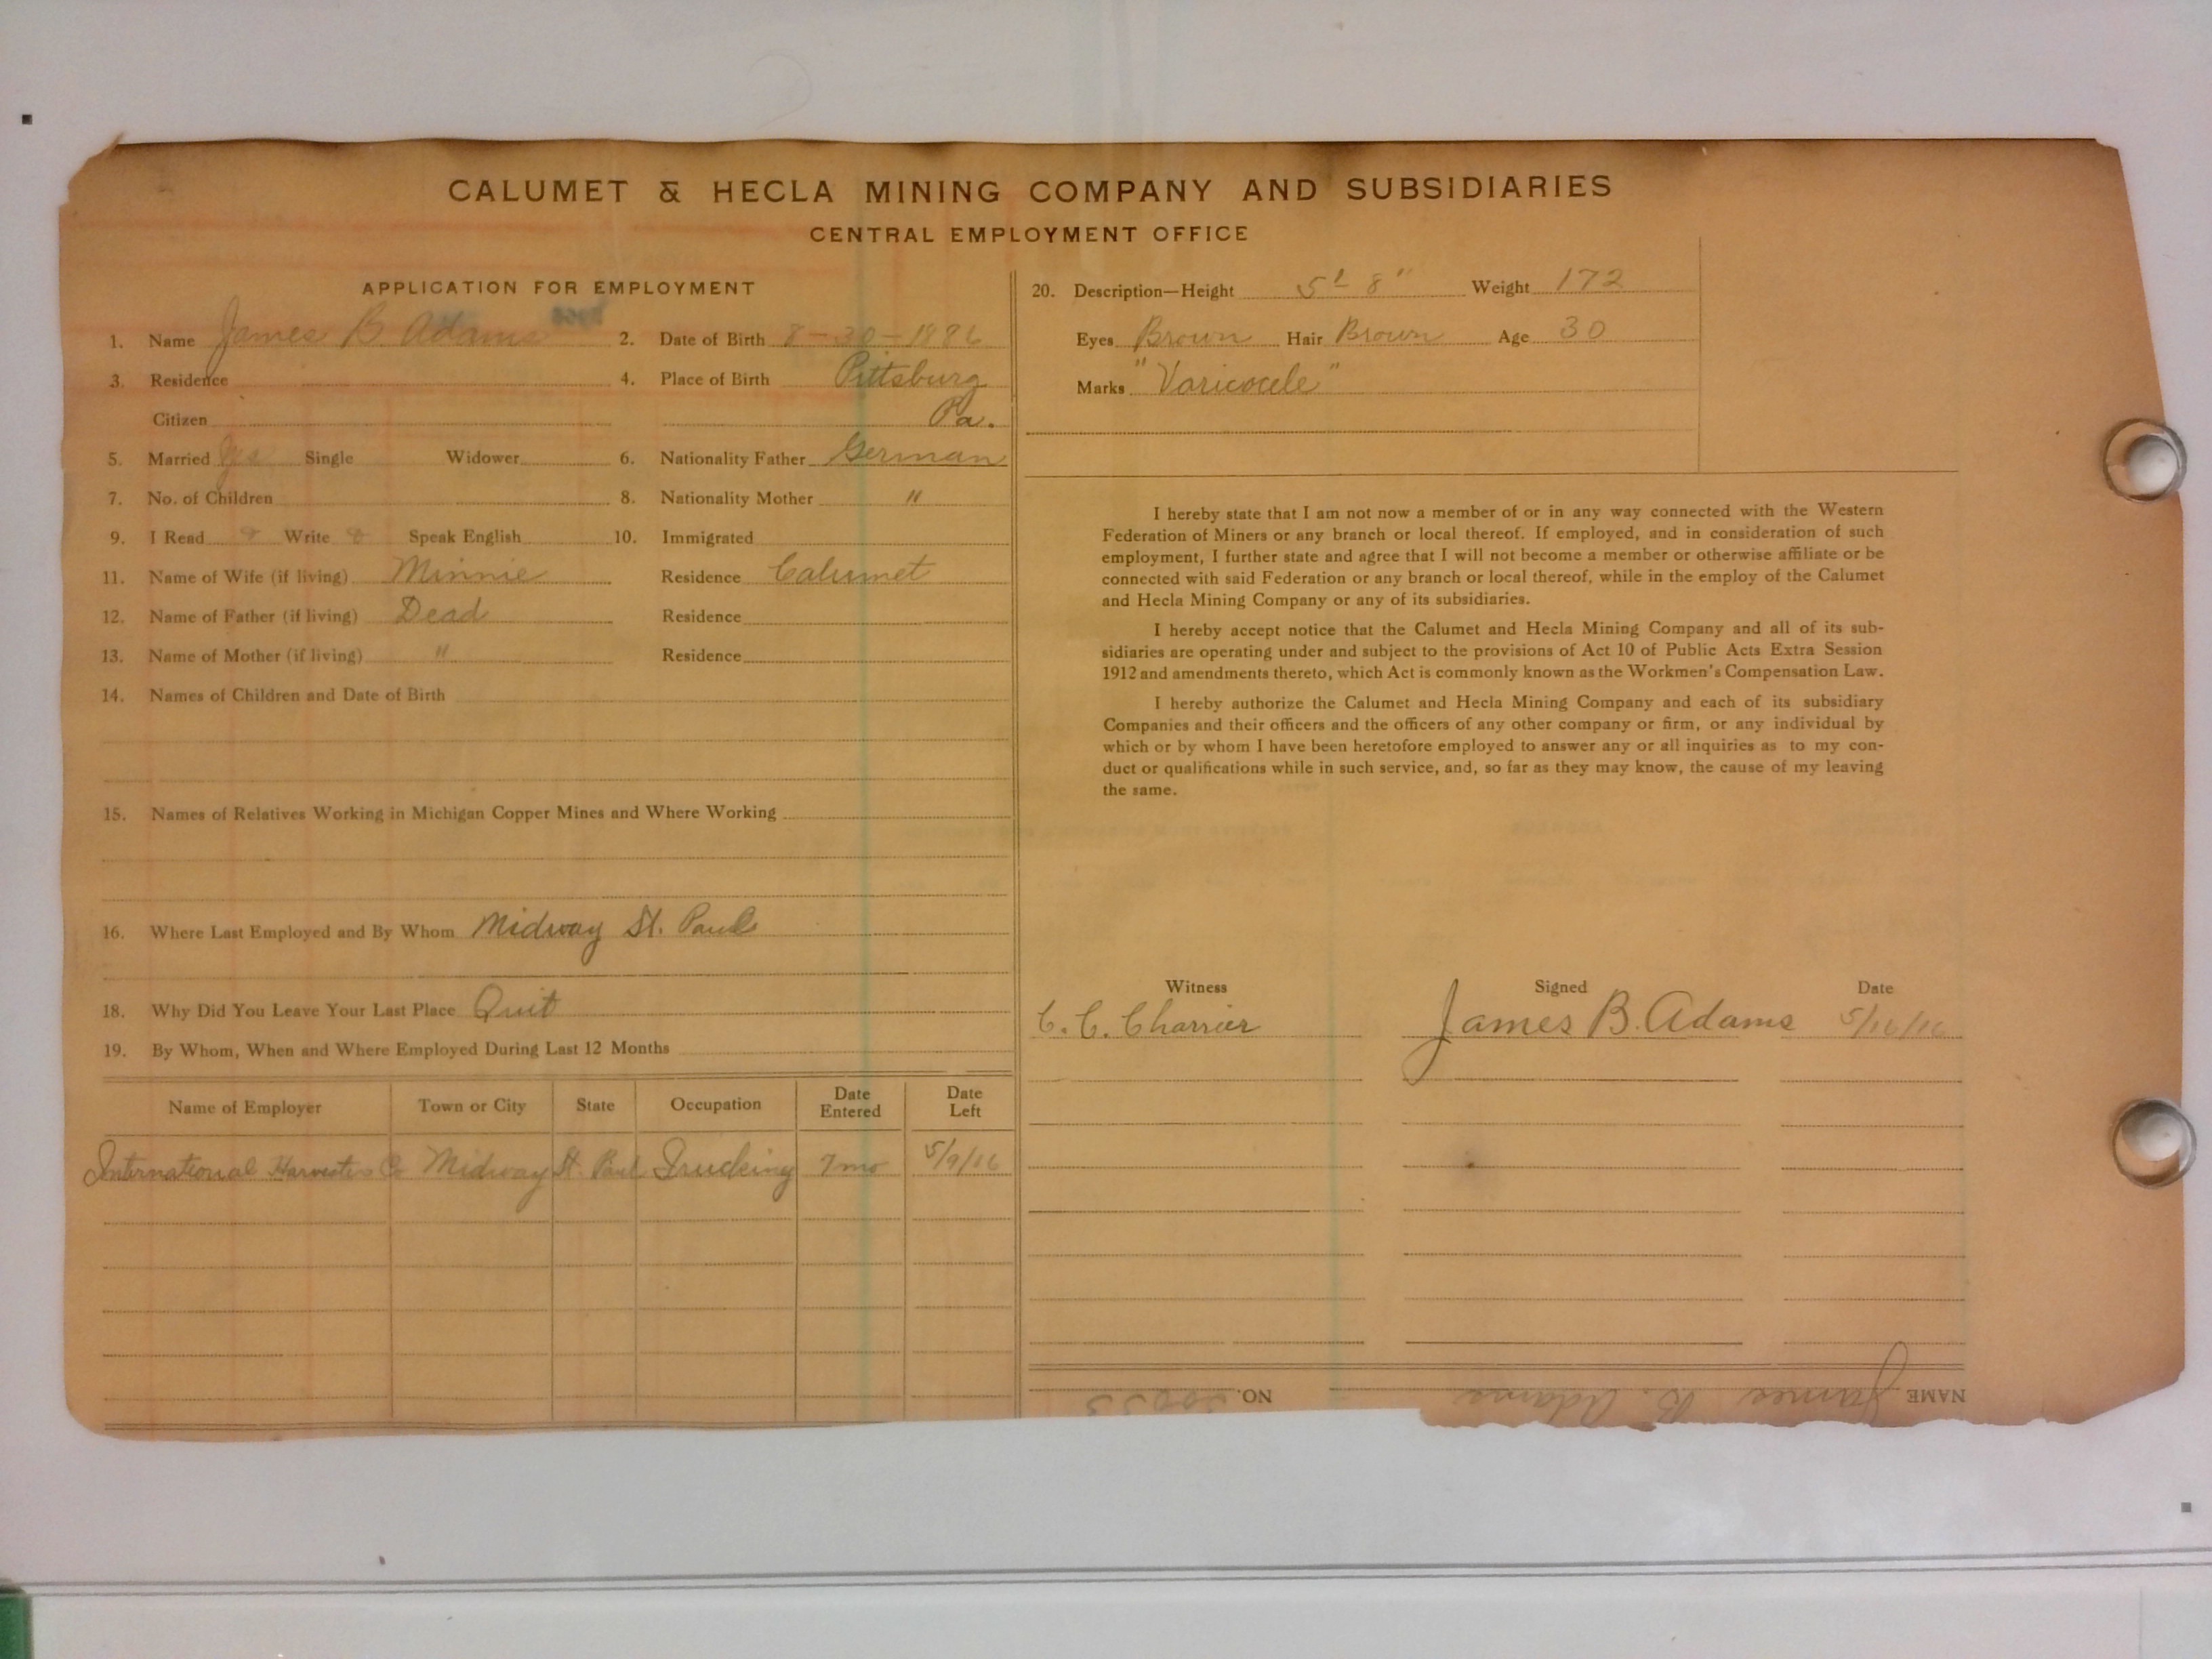 CALUMET & HECLA MINING COMPANY AND SUBSIDIARIES
CENTRAL EMPLOYMENT OFFICE
APPLICATION FOR EMPLOYMENT
1. Name James B. Adams 2. Date of Birth 8-30-1886
3. Residence 4. Place of Birth Pittsburg
Citizen Pa.
5. Married yes Single Widower 6. Nationality Father German
7. No. of Children 8. Nationality Mother "
9. I Read Write Speak English 10. Immigrated
11. Name of Wife (if living) Minnie Residence Calumet
12. Name of Father (if living) Dead Residence
13. Name of Mother (if living) " Residence
14. Names of Children and Date of Birth
15. Names of Relatives Working in Michigan Copper Mines and Where Working
16. Where Last Employed and By Whom Midway St. Paul
18. Why Did You Leave Your Last Place Quit
19. By Whom, When and Where Employed During Last 12 Months
Name of Employer Town or City State Occupation Date Entered Date Left
International Harvester Co Midway St. Paul Trucking 7 mo 5/9/16
20. Description—Height 5' 8" Weight 172
Eyes Brown Hair Brown Age 30
Marks "Varicocele"
I hereby state that I am not now a member of or in any way connected with the Western
Federation of Miners or any branch or local thereof. If employed, and in consideration of such
employment, I further state and agree that I will not become a member or otherwise affiliate or be
connected with said Federation or any branch or local thereof, while in the employ of the Calumet
and Hecla Mining Company or any of its subsidiaries.
I hereby accept notice that the Calumet and Hecla Mining Company and all of its sub-
sidiaries are operating under and subject to the provisions of Act 10 of Public Acts Extra Session
1912 and amendments thereto, which Act is commonly known as the Workmen's Compensation Law.
I hereby authorize the Calumet and Hecla Mining Company and each of its subsidiary
Companies and their officers and the officers of any other company or firm, or any individual by
which or by whom I have been heretofore employed to answer any or all inquiries as to my con-
duct or qualifications while in such service, and, so far as they may know, the cause of my leaving
the same.
Witness Signed Date
C. C. Charrier James B. Adams 5/16/16
NAME James B. Adams NO.